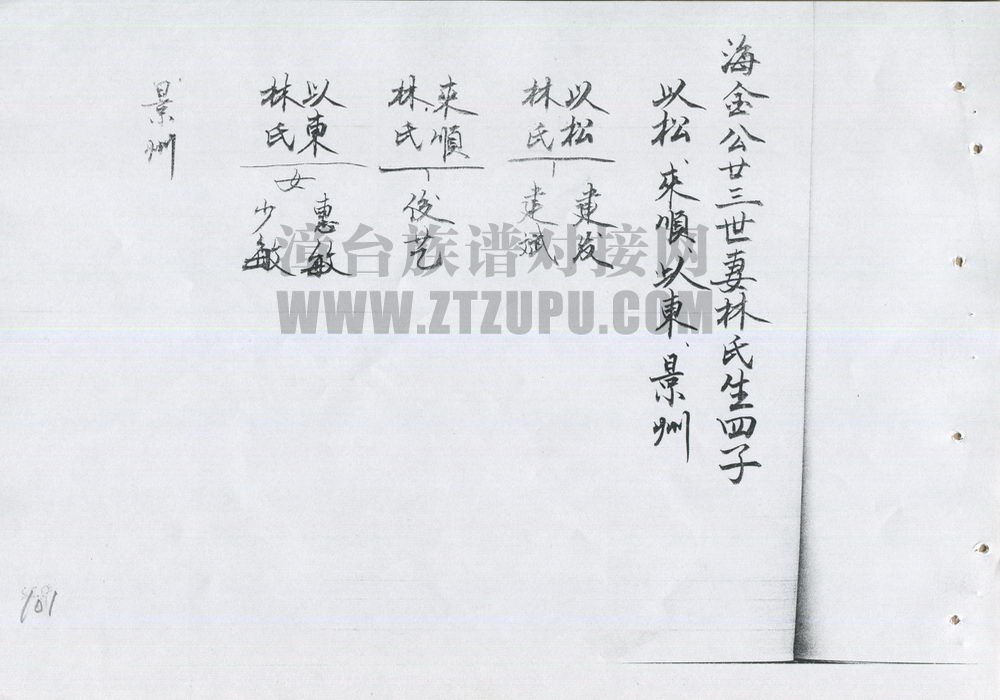 海金公廿三世妻林氏生四子
以松、來順、以東、景州
以松
林氏
建发
建斌
來順
林氏
俊艺
以東
林氏
女
惠敏
少敏
景州
漳台族谱对接网
WWW.ZTZUPU.COM
101